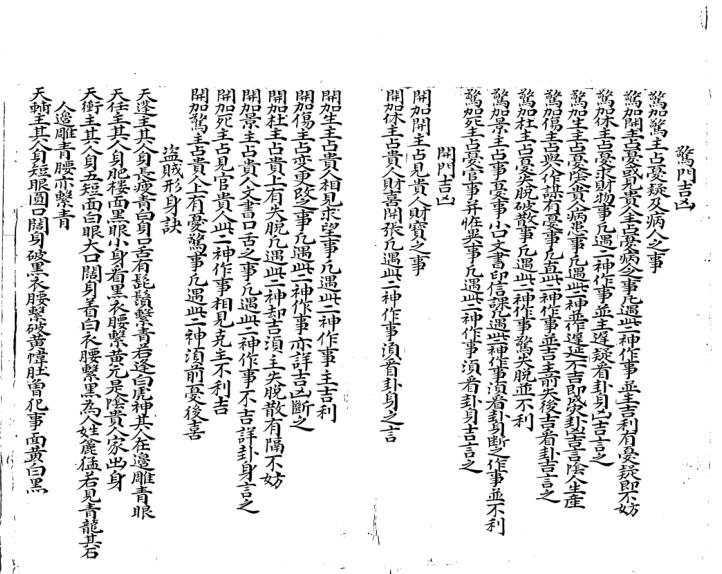 驚門吉凶
驚加驚主占憂疑及病人之事
驚加開主占憂或見貴人主占憂病人之事凡遇此二神作事並主吉利有憂疑即不妨
驚加休主占憂求財物事凡遇二神作事並主遲疑看卦身凶吉言之
驚加生主占憂陰貴人病患事凡遇此二神並作遲延不吉即吉言陰人生產
驚加傷主占與作謀有憂事凡直此二神作事並吉主前失後吉看卦吉言之
驚加杜主占憂失脫破散事凡遇此二神作事驚失脫並不利
驚加景主占事憂事小口文書印信課凡遇此神作事湏看卦身断之作事並不利
驚加死主占憂官事并惟異事凡遇此二神作事湏看卦身吉言之
開門吉凶
開加開主占見貴人財寶之事
開加休主占貴人財喜開張凡遇此二神作事湏看卦身之吉
開加生主占貴人相見求望事凡遇此二神作事主吉利
開加傷主占変更改之事凡遇此二神作事亦詳吉凶斷之
開加杜主占貴上有失脫凡遇此二神却吉湏主失脫散有隔不妨
開加景主占貴人文書口舌之事凡遇此二神作事不吉詳卦身言之
開加死主占見官貴人此二神作事相見尅主不利吉
開加驚主占貴人上有憂驚事凡遇此二神湏前憂後喜
盜賊形身訣
天蓬主其人身長瘦青白身口舌有髭鬚繫青若逢白虎神其人在邊雕青眼
天任主其人身肥矮面黑眼小身着黑衣腰繫黄元是陰貴人家出身
天衝主其人身五短面白眼大口闊身着白衣腰繫黑為人姓麄猛若見青龍其右
人邉雕青腰亦繫青
天輔主其人身短眼圓口闊身破黑衣腰繫破黄幃肚曾犯事面黄白黑